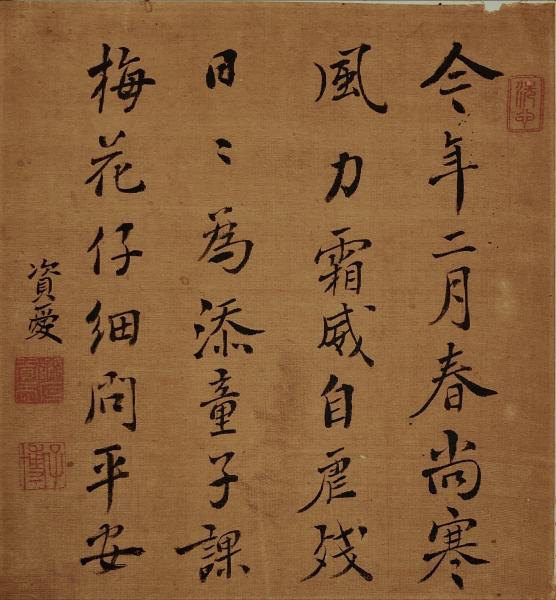 今年二月春尚寒
風力霜威自虐殘
日〻為添童子課
梅花仔細問平安
資愛